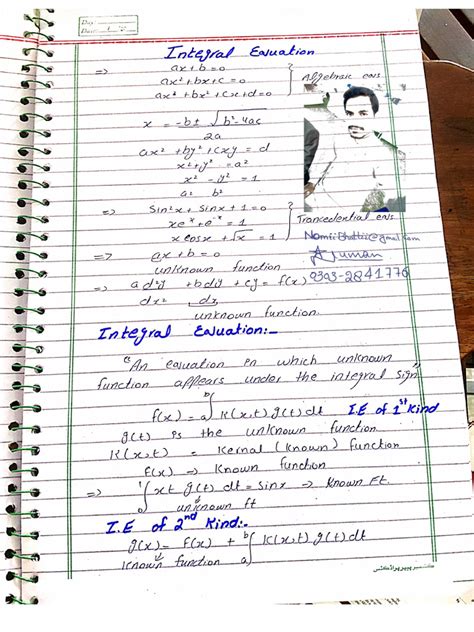 Day
Date
Integral Equation
=> ax + b = 0
ax² + bx + c = 0
ax³ + bx² + cx + d = 0
} Algebraic eqs
x = -b ± √b²-4ac
2a
ax² + by² + cxy = d
x² + y² = a²
x² - y² = 1
a² b²
=> Sin²x + Sinx + 1 = 0
xeˣ + e⁻ˣ = 1
x cosx + √x = 1
} Trancedential eqs.
=> ax + b = 0
unknown function
Nomiibhattii@gmail.com
Juman
0303-2841776
=> a d²y + b dy + cy = f(x)
dx² dx
unknown function.
Integral Equation:-
"An equation in which unknown
function appears under the integral sign"
f(x) = a∫ᵇ K(x,t) g(t) dt I.E of 1st Kind
g(t) is the unknown function
K(x,t) = Kernal (known) function
f(x) → known function
=> ₀∫¹ xt g(t) dt = Sinx → known ft.
unknown ft
I.E of 2nd Kind:-
g(x) = f(x) + a∫ᵇ K(x,t) g(t) dt
known function